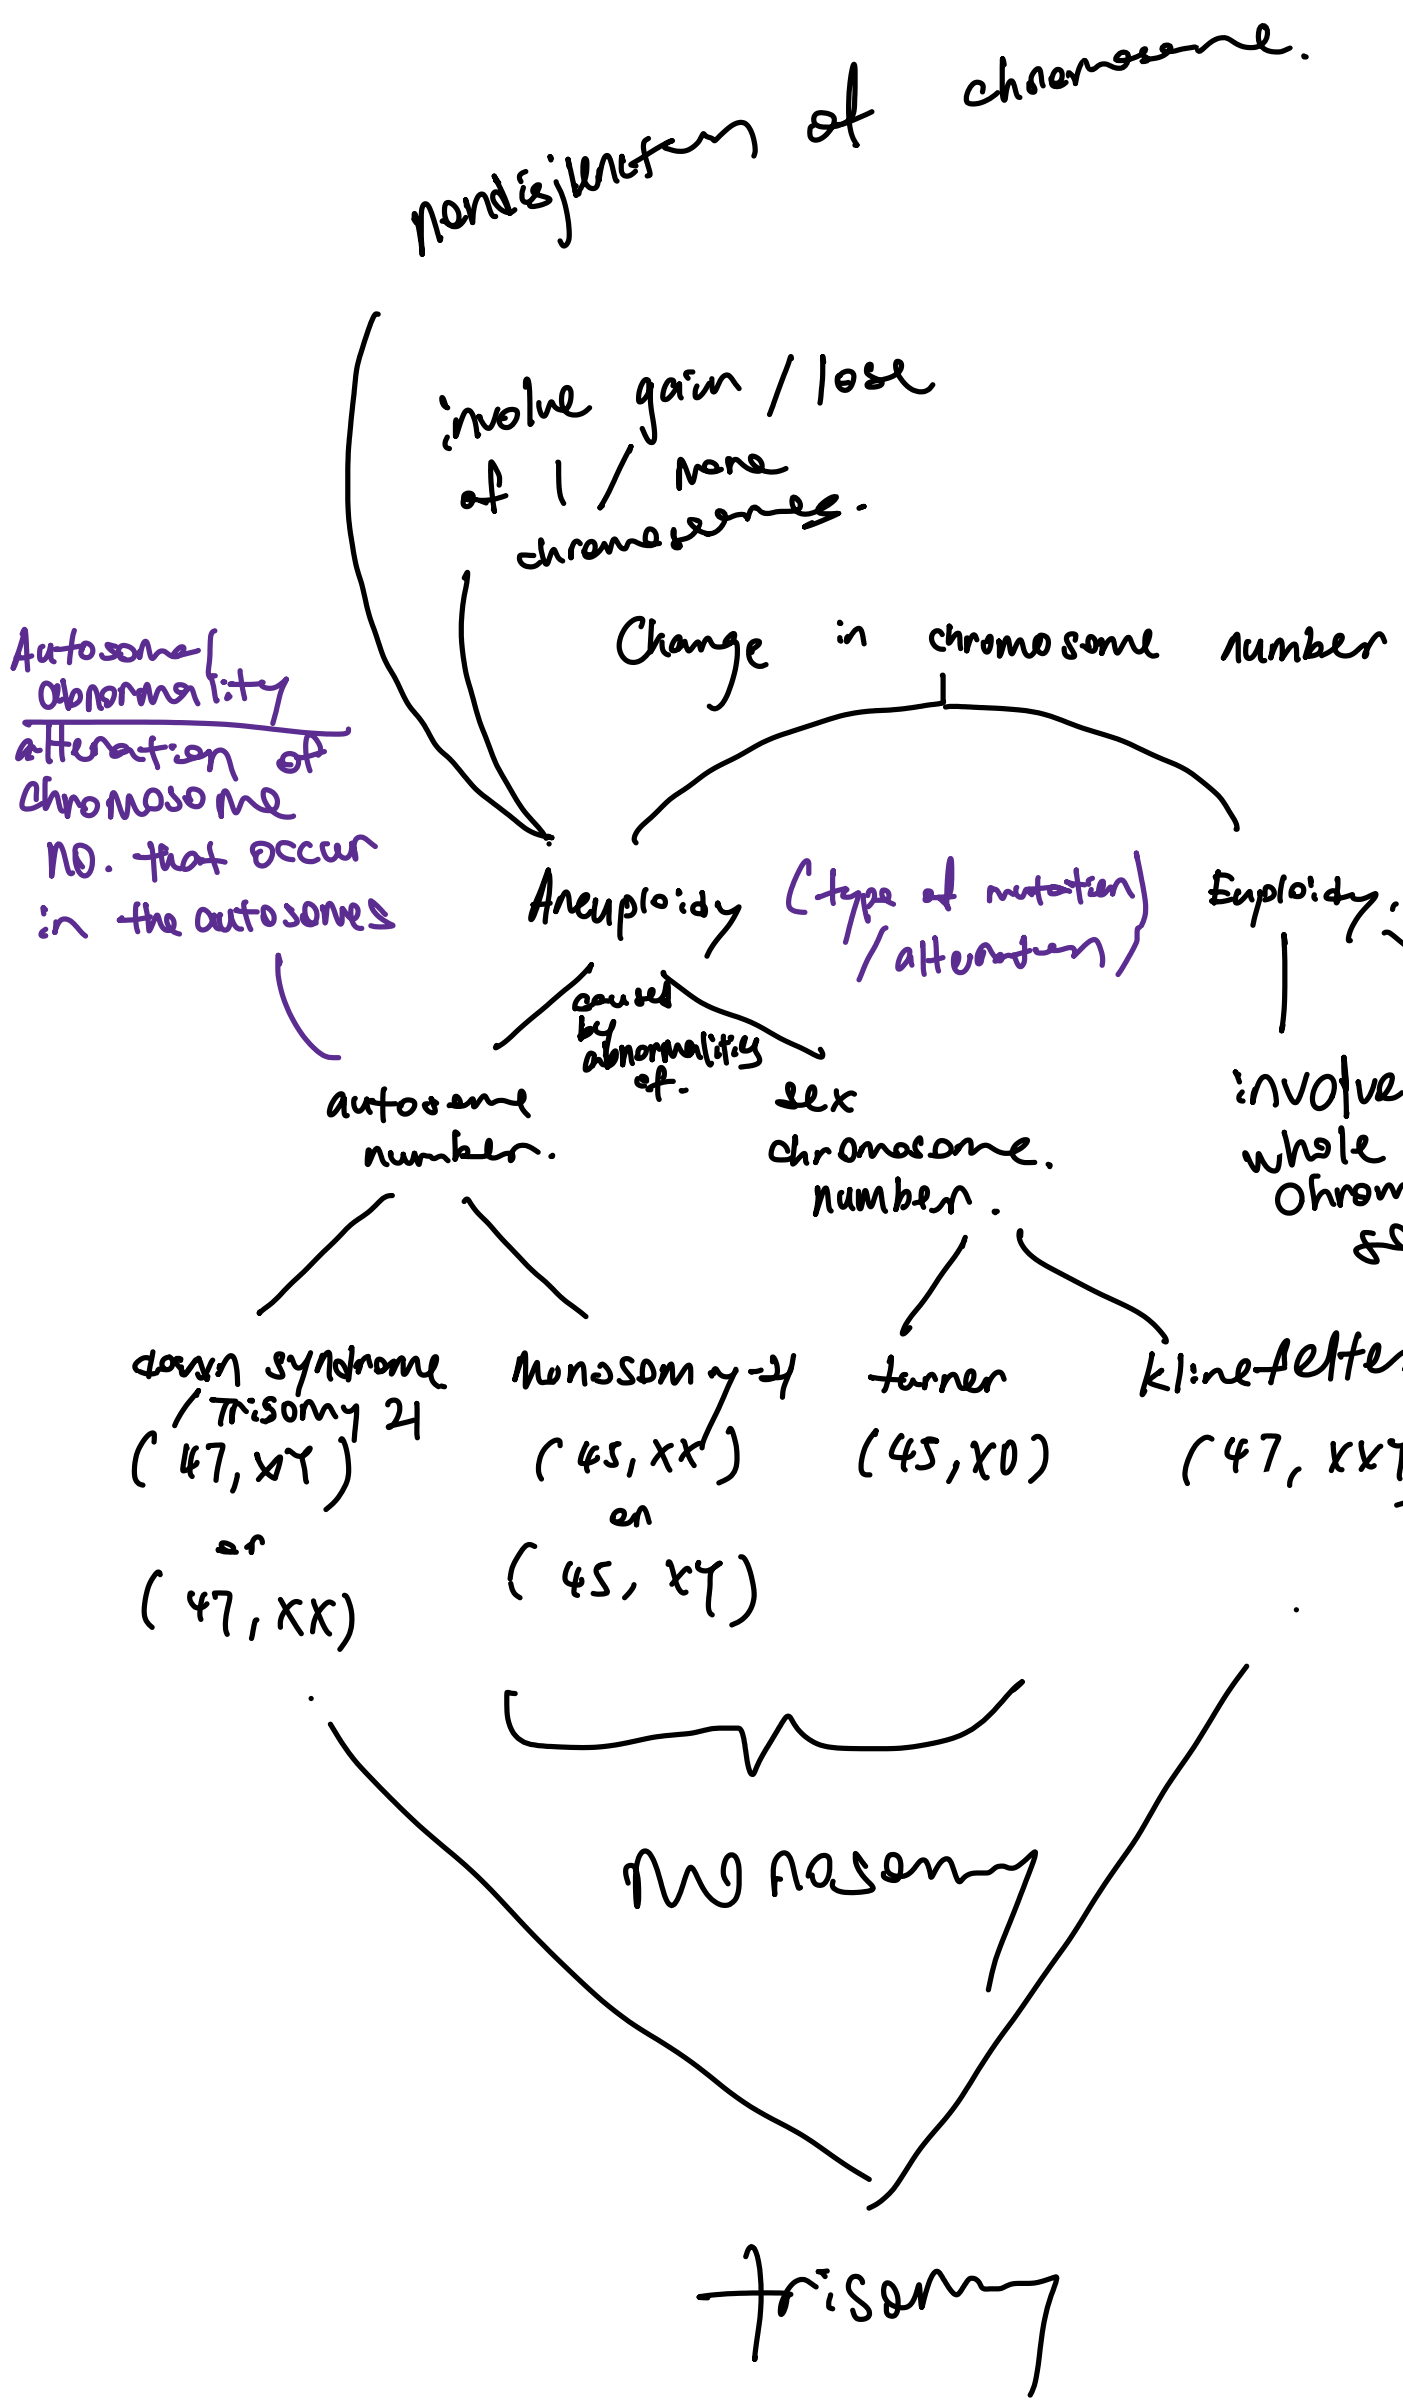 nondisjunction of chromosome.
involve gain / lose
of 1 / more
chromosomes.
Change in chromosome number
Autosomal
abnormality
alteration of
chromosome
no. that occur
in the autosomes
Aneuploidy
(type of mutation
/ alteration)
Euploidy.
caused
by
abnormalitiy
of.
autosome
number.
sex
chromosome.
number.
involve
whole
chrom
se
down syndrome
/ Trisomy 21
(47, XY)
or
(47, XX)
Monosomy -21
(45, XX)
or
(45, XY)
turner
(45, XO)
klinefelte
(47, XXY
monosomy
trisomy